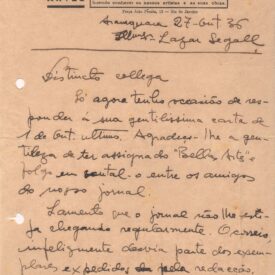 buscando conhecer os nossos artistas e as suas obras
Praça João Pessoa, 15 — Rio de Janeiro
Araraquara 27-out 36
Illmo Sr. Lazar Segall
Distincto collega
Só agora tenho occasião de res-
ponder á sua gentilissima carta de
1 de out. ultimo. Agradeço-lhe a gen-
tileza de ter assignado "Bellas Artes" e
folgo em contal-o entre os amigos
do nosso jornal.
Lamento que o jornal não lhe este-
ja chegando regularmente. O correio
infelizmente desvia parte dos exem-
plares expedidos pela redacção.